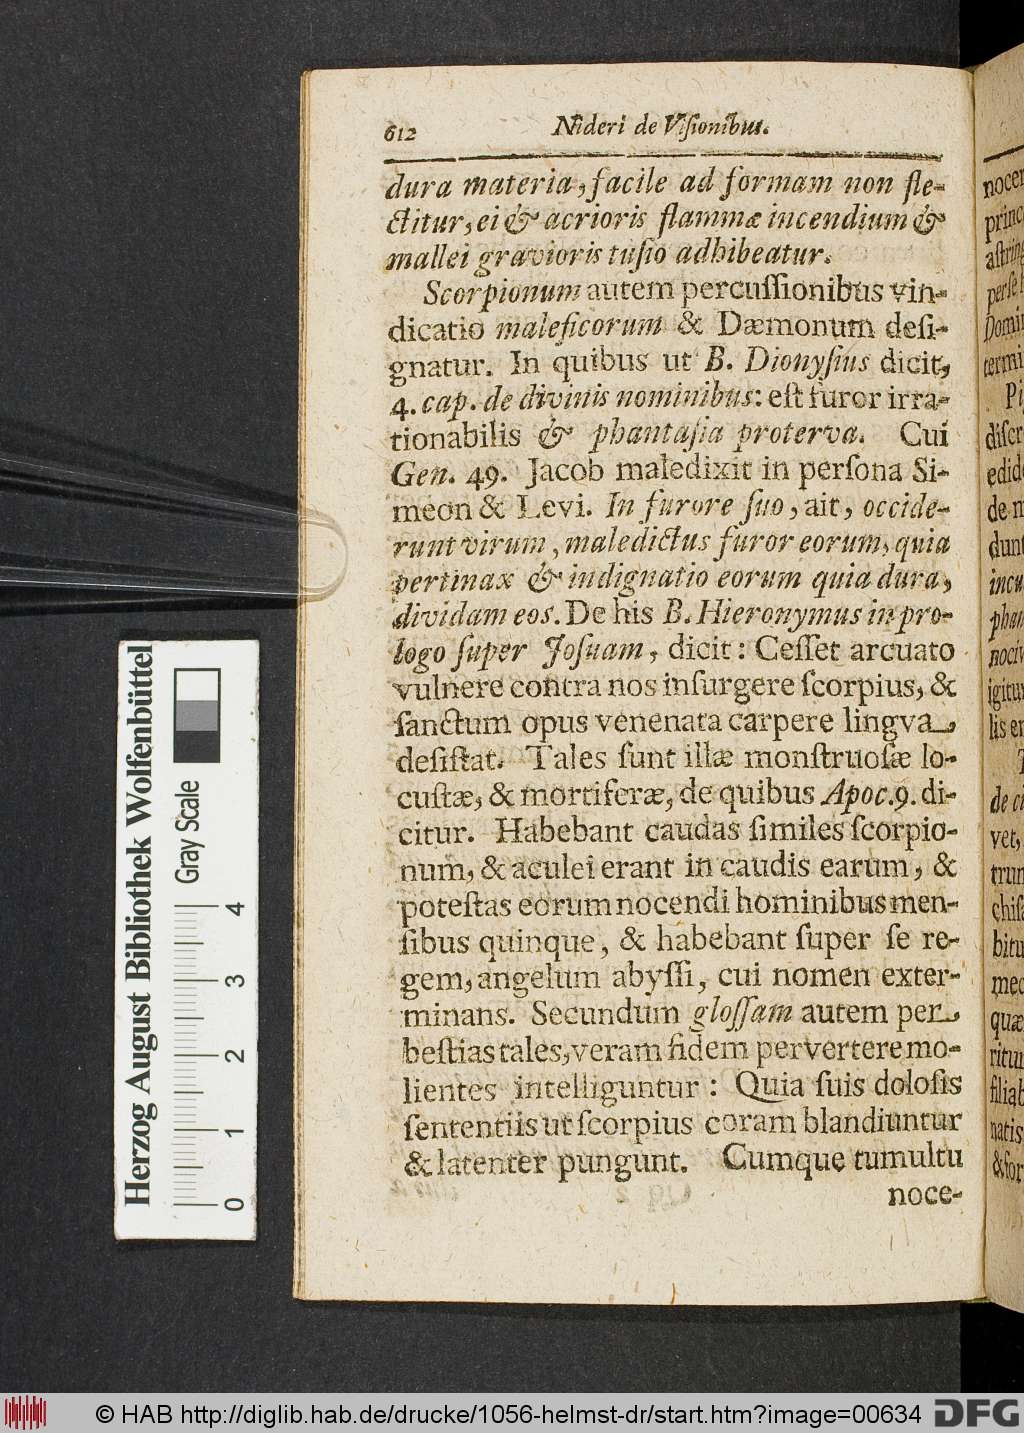 612 Nideri de Viſionibus.
dura materia, facile ad formam non fle-
ctitur, ei & acrioris flammæ incendium &
mallei gravioris tuſio adhibeatur.
Scorpionum autem percuſſionibus vin-
dicatio maleficorum & Dæmonum deſi-
gnatur. In quibus ut B. Dionyſius dicit,
4. cap. de divinis nominibus: eſt furor irra-
tionabilis & phantaſia proterva. Cui
Gen. 49. Jacob maledixit in perſona Si-
meon & Levi. In furore ſuo, ait, occide-
runt virum, maledictus furor eorum, quia
pertinax & indignatio eorum quia dura,
dividam eos. De his B. Hieronymus in pro-
logo ſuper Joſuam, dicit: Ceſſet arcuato
vulnere contra nos inſurgere ſcorpius, &
ſanctum opus venenata carpere lingva,
deſiſtat. Tales ſunt illæ monſtruoſæ lo-
cuſtæ, & mortiferæ, de quibus Apoc. 9. di-
citur. Habebant caudas ſimiles ſcorpio-
num, & aculei erant in caudis earum, &
poteſtas eorum nocendi hominibus men-
ſibus quinque, & habebant ſuper ſe re-
gem, angelum abyſſi, cui nomen exter-
minans. Secundum gloſſam autem per
beſtias tales, veram fidem pervertere mo-
lientes intelliguntur: Quia ſuis doloſis
ſententiis ut ſcorpius coram blandiuntur
& latenter pungunt. Cumque tumultu
noce-
Herzog August Bibliothek Wolfenbüttel
Gray Scale
0 1 2 3 4
© HAB http://diglib.hab.de/drucke/1056-helmst-dr/start.htm?image=00634
DFG